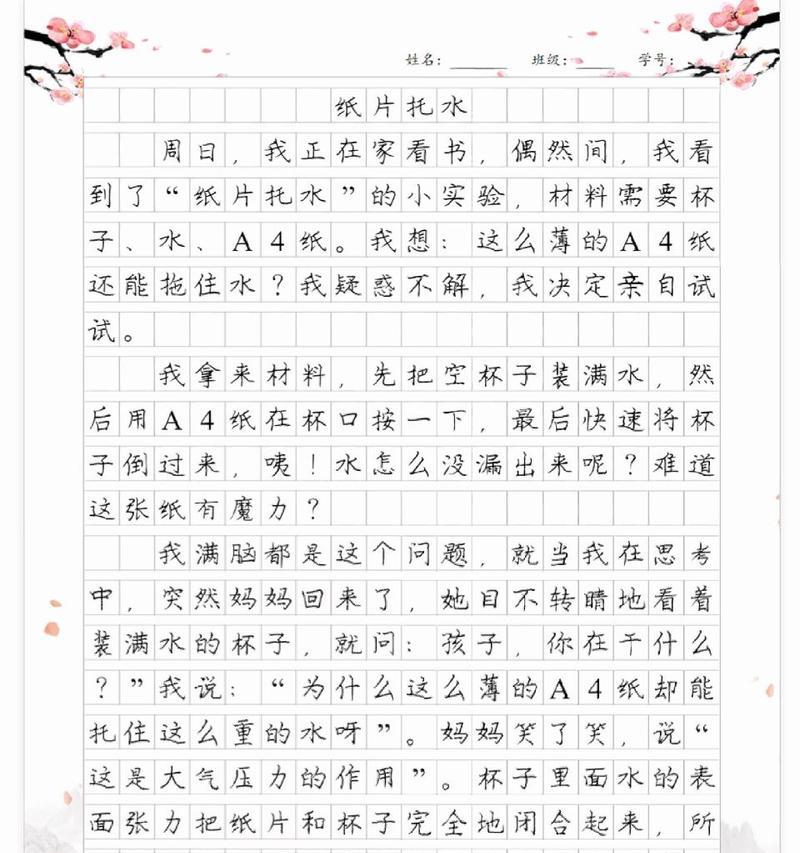 姓名：______ 班级：____ 学号：
纸片托水
周日，我正在家看书，偶然间，我看
到了“纸片托水”的小实验，材料需要杯
子、水、A4纸。我想：这么薄的A4纸
还能拖住水？我疑惑不解，我决定亲自试
试。
我拿来材料，先把空杯子装满水，然
后用A4纸在杯口按一下，最后快速将杯
子倒过来，咦！水怎么没漏出来呢？难道
这张纸有魔力？
我满脑都是这个问题，就当我在思考
中，突然妈妈回来了，她目不转晴地看着
装满水的杯子，就问：孩子，你在干什么
？”我说：“为什么这么薄的A4纸却能
托住这么重的水呀”。妈妈笑了笑，说“
这是大气压力的作用”。杯子里面水的表
面张力把纸片和杯子完全地闭合起来，所